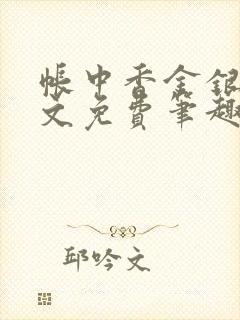 帐中香金银
文免费笔趣
邱吟文